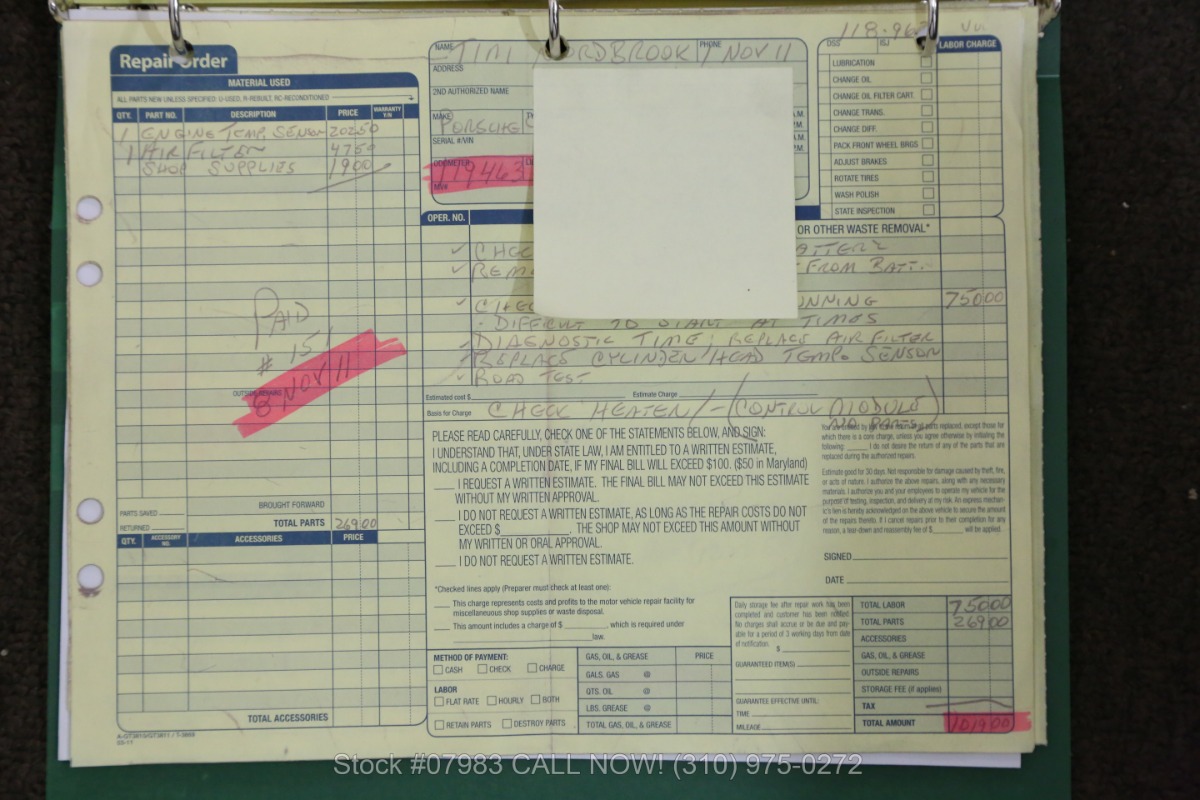 118,96
Repair Order
MATERIAL USED
ALL PARTS NEW UNLESS SPECIFIED: U-USED, R-REBUILT, RC-RECONDITIONED
QTY. PART NO. DESCRIPTION PRICE WARRANTY Y/N
1 ENGINE TEMP. SENSOR 202 50
1 AIR FILTER 47 50
SHOP SUPPLIES 19 00
PAID
# 151
8 NOV 11
OUTSIDE REPAIRS
BROUGHT FORWARD
PARTS SAVED
RETURNED
TOTAL PARTS 269 00
QTY. ACCESSORY NO. ACCESSORIES PRICE
TOTAL ACCESSORIES
NAME TIM NORDBROOK / PHONE NOV 11
ADDRESS
2ND AUTHORIZED NAME
MAKE PORSCHE
A.M.
P.M.
SERIAL #/VIN
A.M.
P.M.
ODOMETER 119463
MV#
DSS ISJ LABOR CHARGE
LUBRICATION
CHANGE OIL
CHANGE OIL FILTER CART.
CHANGE TRANS.
CHANGE DIFF.
PACK FRONT WHEEL BRGS
ADJUST BRAKES
ROTATE TIRES
WASH POLISH
STATE INSPECTION
OPER. NO.
OR OTHER WASTE REMOVAL*
CHEC ATTERY
REM FROM BATT.
CHEC NNING 750 00
- DIFFICULT TO START AT TIMES
DIAGNOSTIC TIME; REPLACE AIR FILTER
REPLACE CYLINDER HEAD TEMP. SENSOR
ROAD TEST
Estimated cost $ Estimate Charge
Basis for Charge CHECK HEATER / - (CONTROL MODULE
NO PARTS)
PLEASE READ CAREFULLY, CHECK ONE OF THE STATEMENTS BELOW, AND SIGN:
I UNDERSTAND THAT, UNDER STATE LAW, I AM ENTITLED TO A WRITTEN ESTIMATE,
INCLUDING A COMPLETION DATE, IF MY FINAL BILL WILL EXCEED $100. ($50 in Maryland)
I REQUEST A WRITTEN ESTIMATE. THE FINAL BILL MAY NOT EXCEED THIS ESTIMATE
WITHOUT MY WRITTEN APPROVAL.
I DO NOT REQUEST A WRITTEN ESTIMATE, AS LONG AS THE REPAIR COSTS DO NOT
EXCEED $ . THE SHOP MAY NOT EXCEED THIS AMOUNT WITHOUT
MY WRITTEN OR ORAL APPROVAL.
I DO NOT REQUEST A WRITTEN ESTIMATE.
*Checked lines apply (Preparer must check at least one):
This charge represents costs and profits to the motor vehicle repair facility for
miscellaneous shop supplies or waste disposal.
This amount includes a charge of $ , which is required under
law.
You are entitled by law to the return of all parts replaced, except those for
which there is a core charge, unless you agree otherwise by initialing the
following: I do not desire the return of any of the parts that are
replaced during the authorized repairs.
Estimate good for 30 days. Not responsible for damage caused by theft, fire,
or acts of nature. I authorize the above repairs, along with any necessary
materials. I authorize you and your employees to operate my vehicle for the
purpose of testing, inspection, and delivery at my risk. An express mechan-
ic's lien is hereby acknowledged on the above vehicle to secure the amount
of the repairs thereto. If I cancel repairs prior to their completion for any
reason, a tear-down and reassembly fee of $ will be applied.
SIGNED
DATE
METHOD OF PAYMENT:
CASH CHECK CHARGE
LABOR
FLAT RATE HOURLY BOTH
RETAIN PARTS DESTROY PARTS
GAS, OIL, & GREASE PRICE
GALS. GAS @
QTS. OIL @
LBS. GREASE @
TOTAL GAS, OIL, & GREASE
Daily storage fee after repair work has been
completed and customer has been notified.
No charges shall accrue or be due and pay-
able for a period of 3 working days from date
of notification. $
GUARANTEED ITEM(S)
GUARANTEE EFFECTIVE UNTIL:
TIME
MILEAGE
TOTAL LABOR 750 00
TOTAL PARTS 269 00
ACCESSORIES
GAS, OIL, & GREASE
OUTSIDE REPAIRS
STORAGE FEE (if applies)
TAX
TOTAL AMOUNT 1019 00
Stock #07983 CALL NOW! (310) 975-0272